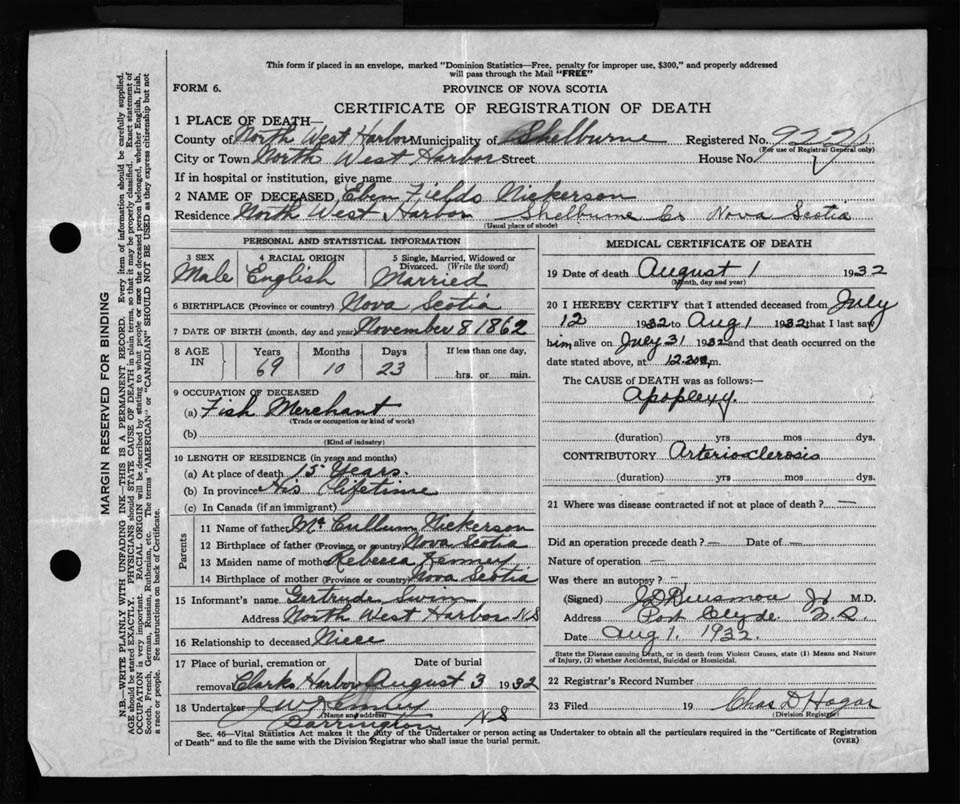 This form if placed in an envelope, marked "Dominion Statistics—Free, penalty for improper use, $300," and properly addressed
will pass through the Mail "FREE"
FORM 6.
PROVINCE OF NOVA SCOTIA
CERTIFICATE OF REGISTRATION OF DEATH
1 PLACE OF DEATH—
County of North West Harbor Municipality of Shelburne Registered No. 922
(For use of Registrar General only)
City or Town North West Harbor Street House No.
If in hospital or institution, give name
2 NAME OF DECEASED Eben Fields Nickerson
Residence North West Harbor Shelburne Co Nova Scotia
(Usual place of abode)
PERSONAL AND STATISTICAL INFORMATION
3 SEX Male
4 RACIAL ORIGIN English
5 Single, Married, Widowed or Divorced. (Write the word) Married
6 BIRTHPLACE (Province or country) Nova Scotia
7 DATE OF BIRTH (month, day and year) November 8 1862
8 AGE IN
Years Months Days If less than one day,
69 10 23 hrs. or min.
9 OCCUPATION OF DECEASED
(a) Fish Merchant
(Trade or occupation or kind of work)
(b)
(Kind of industry)
10 LENGTH OF RESIDENCE (in years and months)
(a) At place of death 15 Years.
(b) In province His Lifetime
(c) In Canada (if an immigrant)
Parents
11 Name of father Mc Cullum Nickerson
12 Birthplace of father (Province or country) Nova Scotia
13 Maiden name of mother Rebecca Kenney
14 Birthplace of mother (Province or country) Nova Scotia
15 Informant's name Gertrude Swim
Address North West Harbor NS
16 Relationship to deceased Niece
17 Place of burial, cremation or Date of burial
removal Clarks Harbor August 3 1932
18 Undertaker J W Kenney
(Name and address)
Barrington NS
MEDICAL CERTIFICATE OF DEATH
19 Date of death August 1 1932
(Month, day and year)
20 I HEREBY CERTIFY that I attended deceased from July
12 1932 to Aug 1 1932 that I last saw
him alive on July 31 1932 and that death occurred on the
date stated above, at 12.30 m.
The CAUSE OF DEATH was as follows:—
Apoplexy.
(duration) yrs mos dys.
CONTRIBUTORY Arteriosclerosis
(duration) yrs mos dys.
21 Where was disease contracted if not at place of death? —
Did an operation precede death? — Date of —
Nature of operation —
Was there an autopsy? —
(Signed) Jr M.D.
Address Port Clyde N.S.
Date Aug 1. 1932.
State the Disease causing Death, or in death from Violent Causes, state (1) Means and Nature
of Injury, (2) whether Accidental, Suicidal or Homicidal.
22 Registrar's Record Number
23 Filed 19 Chas D Hogar
(Division Registrar)
Sec. 46—Vital Statistics Act makes it the duty of the Undertaker or person acting as Undertaker to obtain all the particulars required in the "Certificate of Registration
of Death" and to file the same with the Division Registrar who shall issue the burial permit.
(OVER)
MARGIN RESERVED FOR BINDING
N.B.—WRITE PLAINLY WITH UNFADING INK—THIS IS A PERMANENT RECORD. Every item of information should be carefully supplied.
AGE should be stated EXACTLY. PHYSICIANS should STATE CAUSE OF DEATH in plain terms, so that it may be properly classified. Exact statement of
OCCUPATION is very important. RACIAL ORIGIN will be described by stating to what people or race the deceased person belonged, whether English, Irish,
Scotch, French, German, Russian, Ruthenian, etc. The terms "AMERICAN" or "CANADIAN" SHOULD NOT BE USED as they express citizenship but not
a race or people. See instructions on back of Certificate.